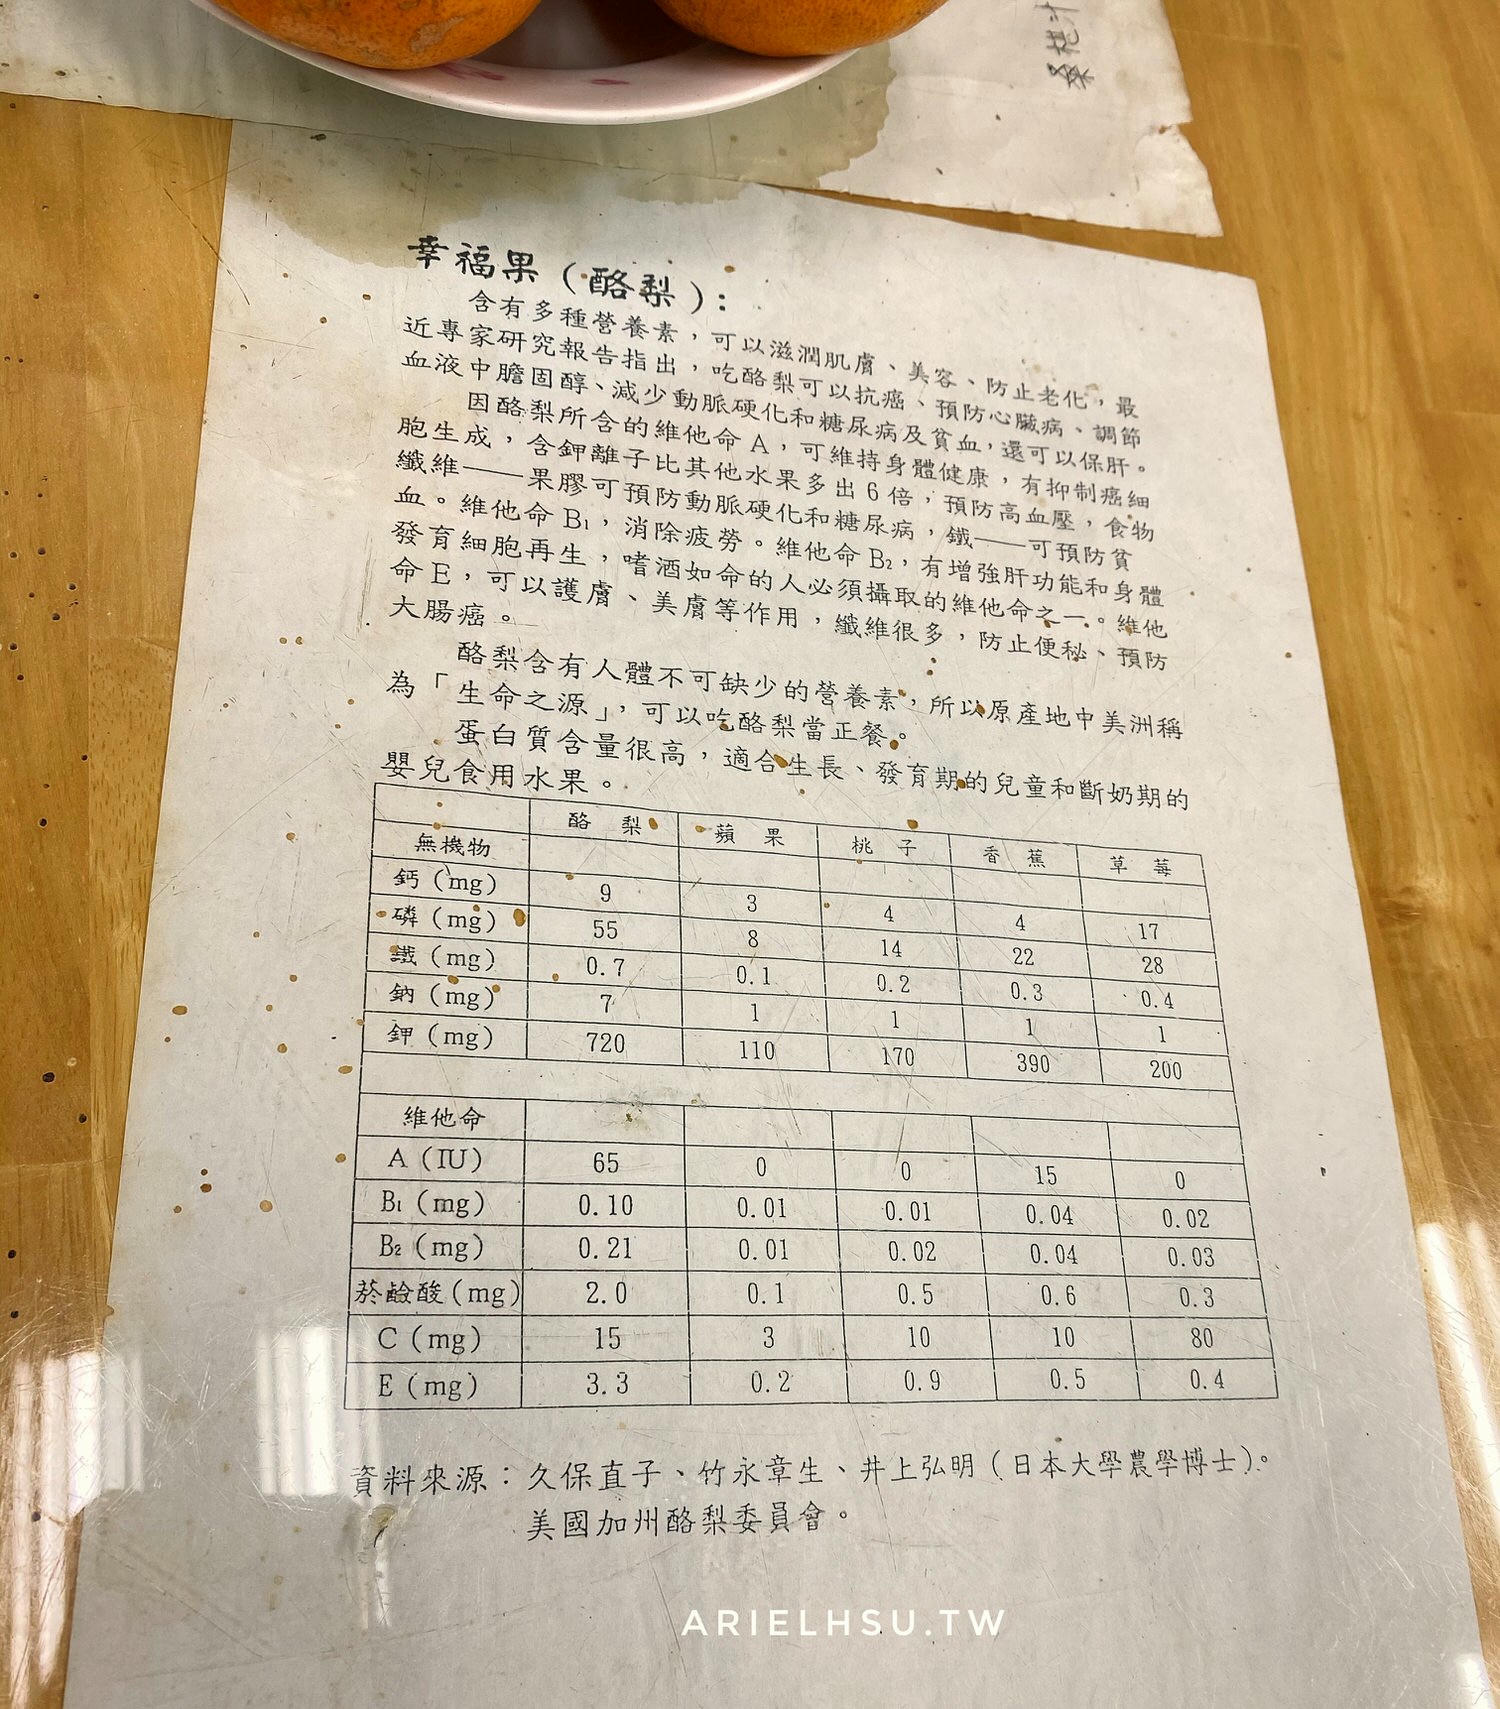 桑椹汁
幸福果（酪梨）：
含有多種營養素，可以滋潤肌膚、美容、防止老化，最
近專家研究報告指出，吃酪梨可以抗癌、預防心臟病、調節
血液中膽固醇、減少動脈硬化和糖尿病及貧血，還可以保肝。
因酪梨所含的維他命A，可維持身體健康，有抑制癌細
胞生成，含鉀離子比其他水果多出6倍，預防高血壓，食物
纖維——果膠可預防動脈硬化和糖尿病，鐵——可預防貧
血。維他命B₁，消除疲勞。維他命B₂，有增強肝功能和身體
發育細胞再生，嗜酒如命的人必須攝取的維他命之一。維他
命E，可以護膚、美膚等作用，纖維很多，防止便秘、預防
大腸癌。
酪梨含有人體不可缺少的營養素，所以原產地中美洲稱
為「生命之源」，可以吃酪梨當正餐。
蛋白質含量很高，適合生長、發育期的兒童和斷奶期的
嬰兒食用水果。
酪梨 蘋果 桃子 香蕉 草莓
無機物
鈣(mg) 9 3 4 4 17
磷(mg) 55 8 14 22 28
鐵(mg) 0.7 0.1 0.2 0.3 0.4
鈉(mg) 7 1 1 1 1
鉀(mg) 720 110 170 390 200
維他命
A(IU) 65 0 0 15 0
B₁(mg) 0.10 0.01 0.01 0.04 0.02
B₂(mg) 0.21 0.01 0.02 0.04 0.03
菸鹼酸(mg) 2.0 0.1 0.5 0.6 0.3
C(mg) 15 3 10 10 80
E(mg) 3.3 0.2 0.9 0.5 0.4
資料來源：久保直子、竹永章生、井上弘明（日本大學農學博士）。
美國加州酪梨委員會。
ARIELHSU.TW